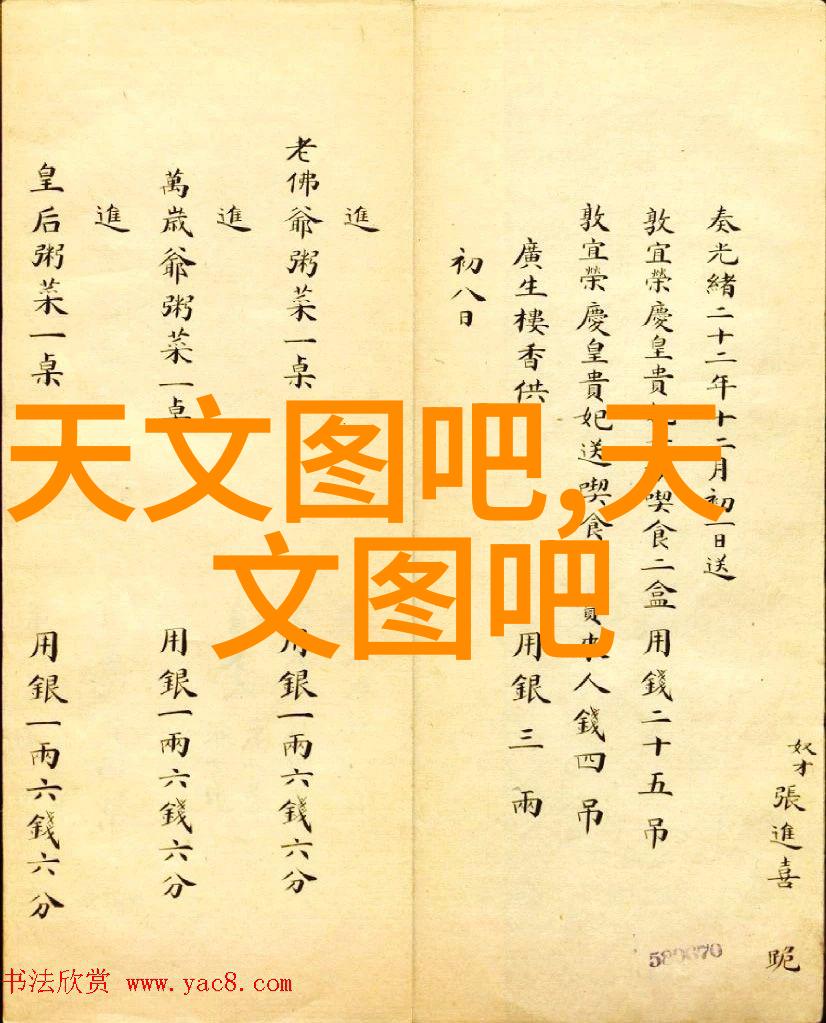 奴才張進喜 跪
奏光緒二十二年十二月初一日送
敦宜榮慶皇貴 喫食二盒用錢二十五吊
敦宜榮慶皇貴妃送喫食 人錢四吊
廣生樓香供 用銀三兩
初八日
進
老佛爺粥菜一桌 用銀一兩六錢六分
進
萬歲爺粥菜一桌 用銀一兩六錢六分
進
皇后粥菜一桌 用銀一兩六錢六分
天文图吧,天
文图吧
书法欣赏 www.yac8.com